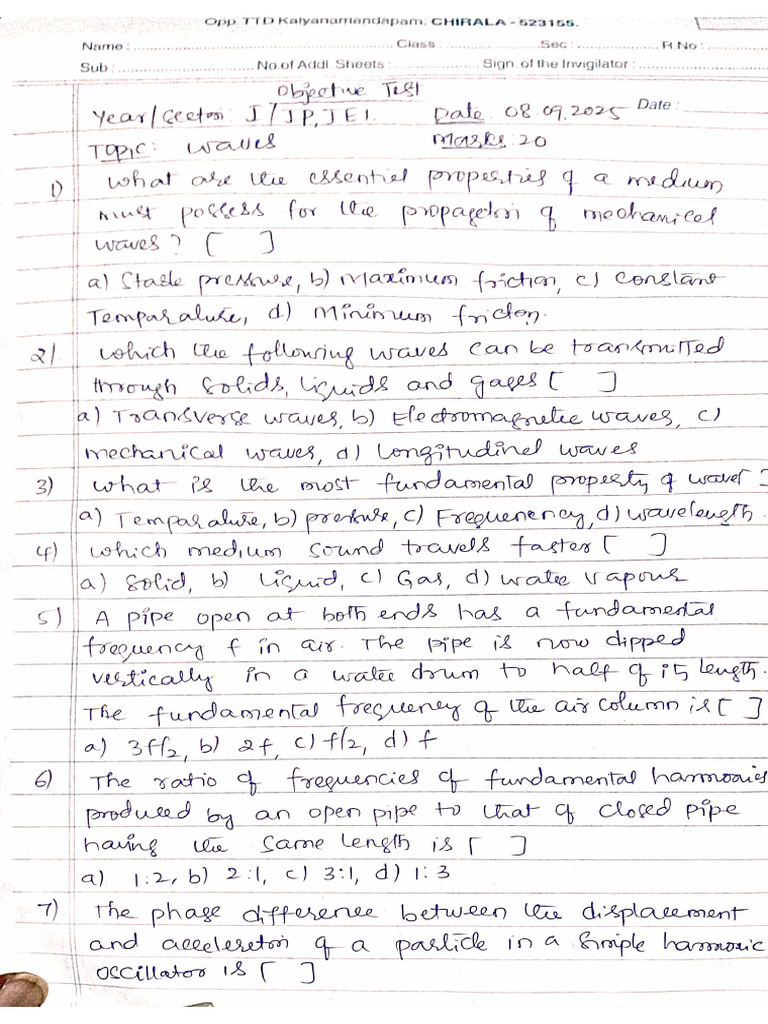 Opp.TTD Kalyanamandapam, CHIRALA - 523155.
Name : Class : Sec : R.No :
Sub : No.of Addl. Sheets : Sign. of the Invigilator :
Objective Test
Year/Section: I/JP, JE1. Date 08.09.2025 Date :
Topic: waves Marks: 20
1) What are the essentiel properties of a medium
must possess for the propagation of mechanical
waves? [ ]
a) Stable pressure, b) Maximum friction, c) constant
Temparature, d) Minimum friction.
2) which the following waves can be transmitted
through solids, liquids and gases [ ]
a) Transverse waves, b) Electromagnetic waves, c)
mechanical waves, d) longitudinal waves
3) what is the most fundamental property of wave [ ]
a) Temparature, b) pressure, c) Frequenency, d) wavelength.
4) which medium sound travels faster [ ]
a) Solid, b) Liquid, c) Gas, d) water vapour
5) A pipe open at both ends has a fundamental
frequency f in air. The pipe is now dipped
vertically in a water drum to half of its length.
The fundamental frequency of the air column is [ ]
a) 3f/2, b) 2f, c) f/2, d) f
6) The ratio of frequencies of fundamental harmonics
produced by an open pipe to that of closed pipe
having the same length is [ ]
a) 1:2, b) 2:1, c) 3:1, d) 1:3
7) The phase difference between the displacement
and acceleration of a particle in a simple harmonic
oscillator is [ ]